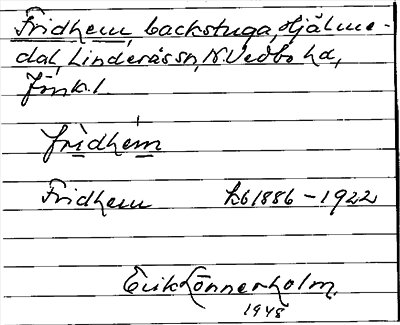 Fridhem, backstuga, Hjälme-
dal, Linderås sn, N. Vedbo hd,
Jönk. l
frìdhém
Fridhem hb 1886 – 1922
Erik Lönnerholm.
1948